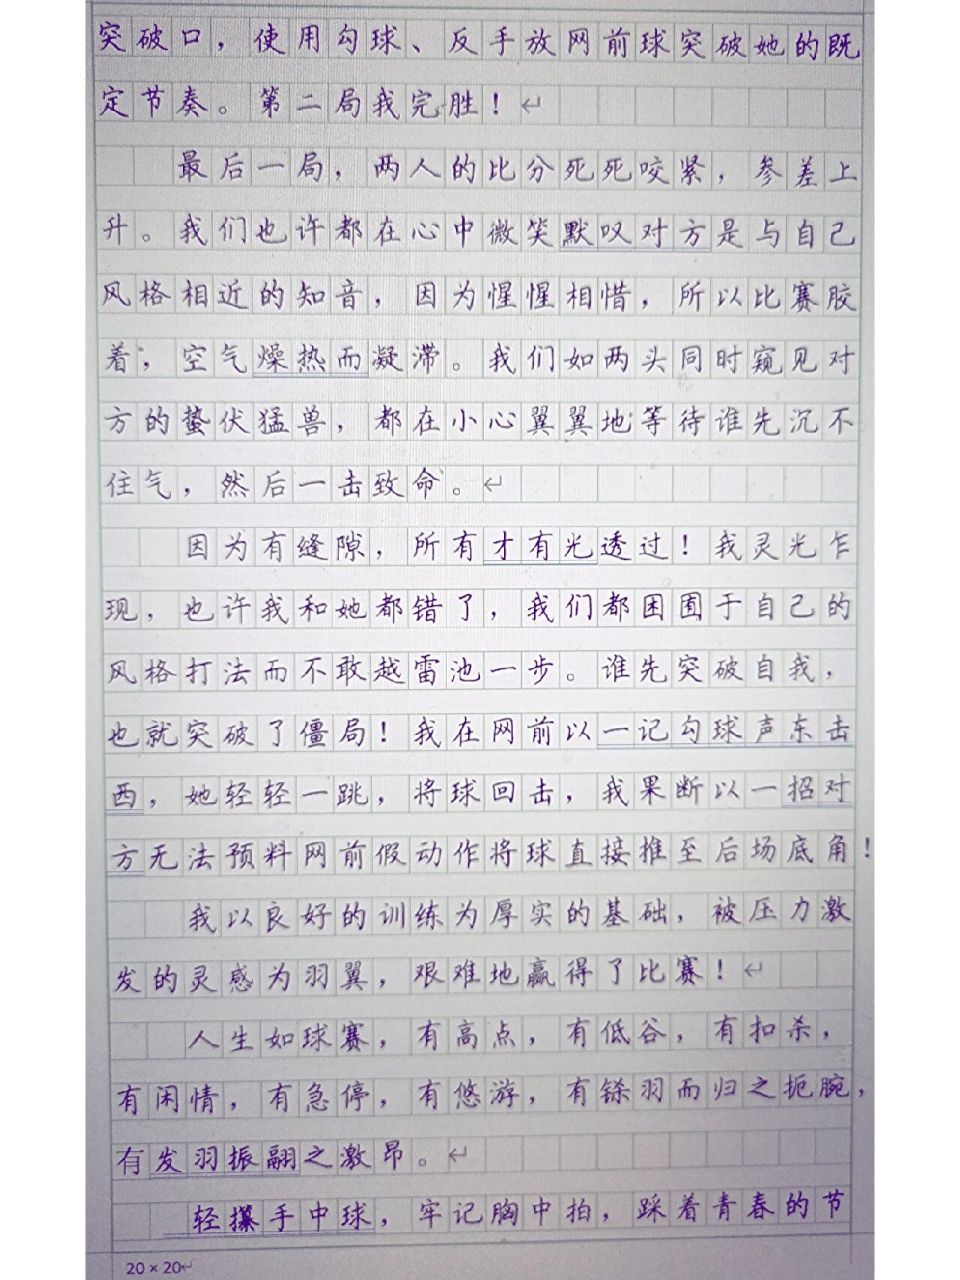 突破口，使用勾球、反手放网前球突破她的既
定节奏。第二局我完胜！↵
最后一局，两人的比分死死咬紧，参差上
升。我们也许都在心中微笑默叹对方是与自己
风格相近的知音，因为惺惺相惜，所以比赛胶
着；空气燥热而凝滞。我们如两头同时窥见对
方的蛰伏猛兽，都在小心翼翼地等待谁先沉不
住气，然后一击致命。↵
因为有缝隙，所有才有光透过！我灵光乍
现，也许我和她都错了，我们都困囿于自己的
风格打法而不敢越雷池一步。谁先突破自我，
也就突破了僵局！我在网前以一记勾球声东击
西，她轻轻一跳，将球回击，我果断以一招对
方无法预料网前假动作将球直接推至后场底角！
我以良好的训练为厚实的基础，被压力激
发的灵感为羽翼，艰难地赢得了比赛！↵
人生如球赛，有高点，有低谷，有扣杀，
有闲情，有急停，有悠游，有铩羽而归之扼腕，
有发羽振翮之激昂。↵
轻攥手中球，牢记胸中拍，踩着青春的节
20×20↵